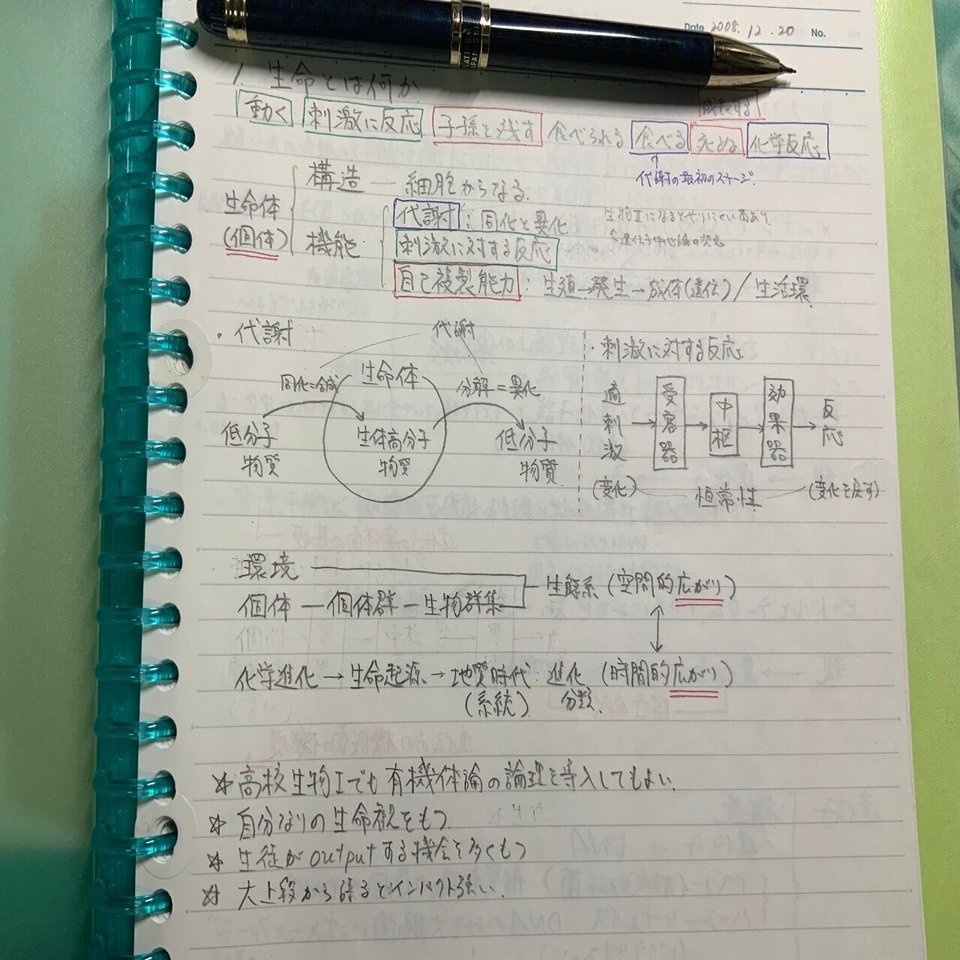 Date 2008.12.20 No.
1. 生命とは何か
成長する
動く 刺激に反応 子孫を残す 食べられる 食べる 死ぬ 化学反応
代謝の最初のステージ
構造 — 細胞からなる
生命体 (個体)
機能
代謝 : 同化と異化
刺激に対する反応
自己複製能力 : 生殖→発生→成体(遺伝) / 生活環
生物Ⅱになるとやりにくい面あり
・代謝
代謝
同化=合成
生命体
分解=異化
低分子物質
生体高分子物質
低分子物質
・刺激に対する反応
適刺激 → 受容器 → 中枢 → 効果器 → 反応
(変化) 恒常性 (変化を戻す)
・環境
個体 — 個体群 — 生物群集
生態系 (空間的広がり)
化学進化 → 生命起源 → 地質時代 : 進化 (時間的広がり)
(系統) 分類
☆ 高校生物Ⅰでも有機体論の論理を導入してもよい
☆ 自分なりの生命観をもつ
☆ 生徒がoutputする機会を多くもつ
☆ 大上段から語るとインパクト強い